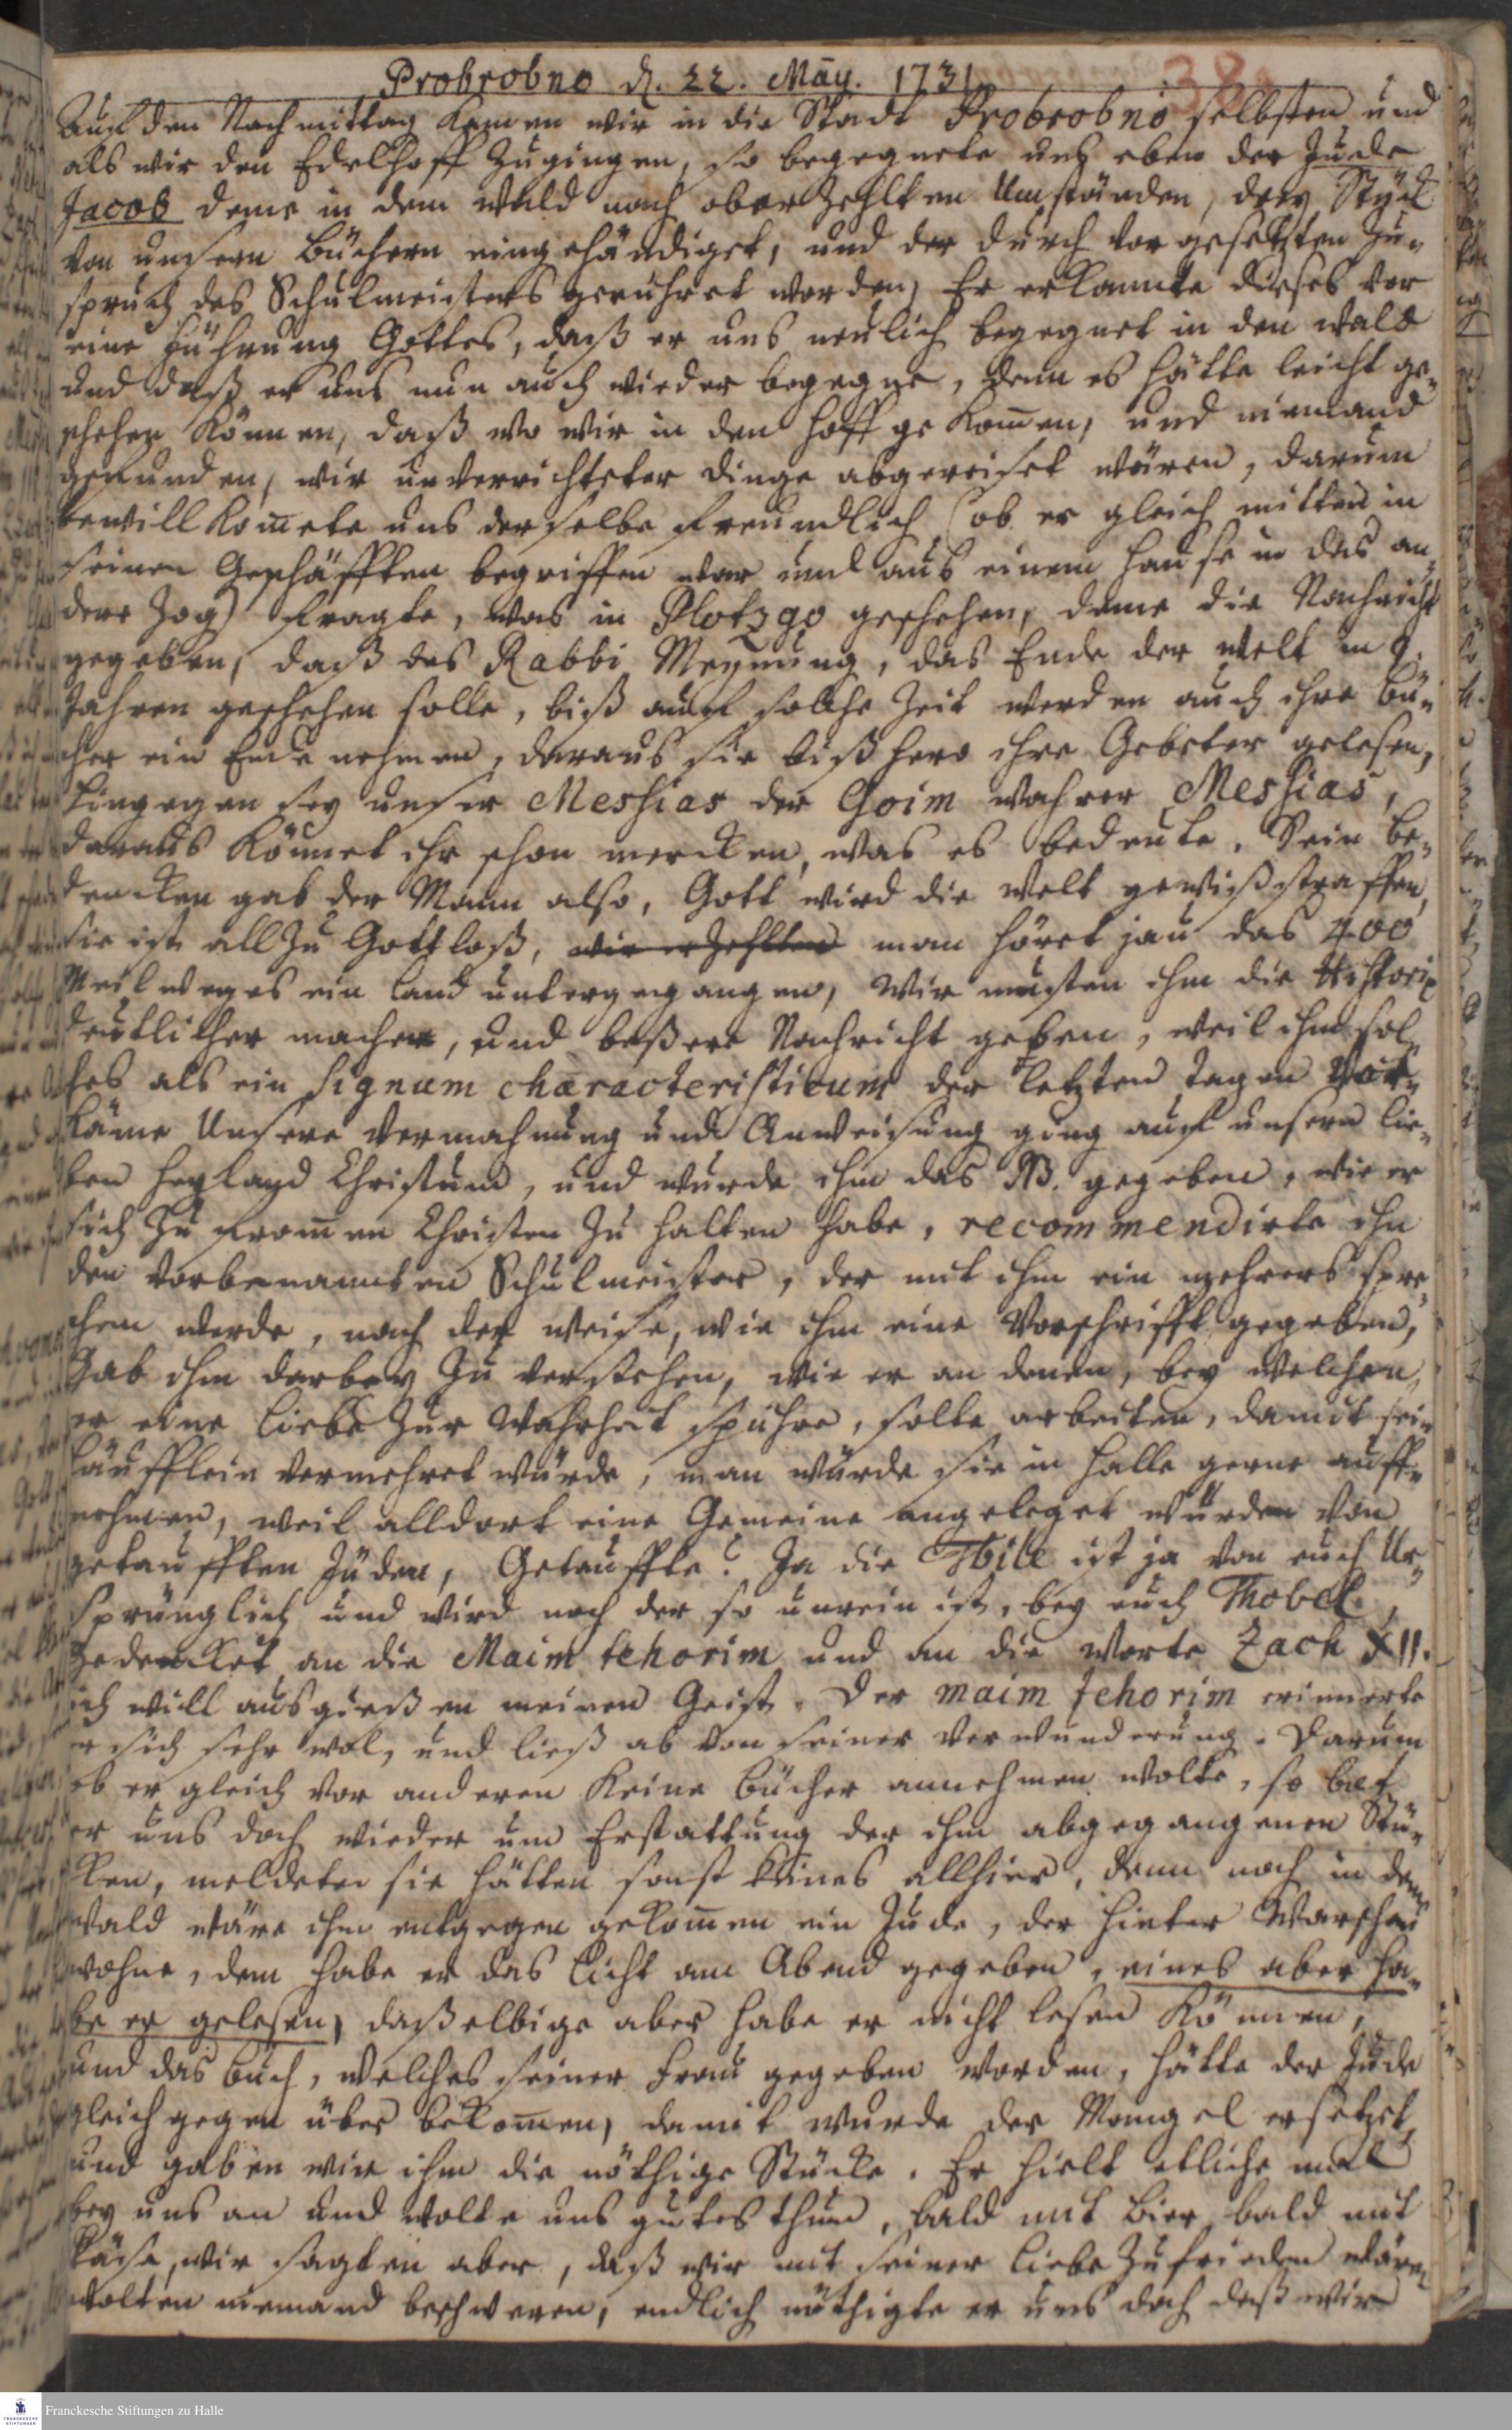 Probrobno d. 22. May. 1731.
38
Auf den Nachmittag kamen wir in die Stadt Probrobno selbsten und
als wir den Edelhoff zugingen, so begegnete uns eben der Jude
Jacob deme in dem Wald nach oberzehlten Umständen, drey Stück
von unsern Büchern eingehändiget, und der durch vorgesetzten Zu-
spruch des Schulmeisters gerühret worden, Er erkannte dieses vor
eine Führung Gottes, daß er uns neulich begegnet in den Wald
und daß er uns nun auch wieder begegne, denn es hätte leicht ge-
schehen können, daß wo wir in den Hoff gekom̅en, und niemand
gefunden, wir unverrichteter Dinge abgereiset wären, darum
bewillkom̅ete uns derselbe freundlich (ob er gleich mitten in
seinen Geschäfften begriffen war und aus einem Hause in das an-
dere zog) fragte, was in Plotzgo geschehen, deme die Nachricht
gegeben, daß des Rabbi Meynung, das Ende der Welt in 9.
Jahren geschehen solle, biß auf solche Zeit werden auch ihre Bü-
cher ein Ende nehmen, daraus sie bißhero ihre Gebeter gelesen,
hingegen sey unser Messias der Goim wahrer Messias,
daraus könnet ihr schon mercken, was es bedeute. Sein Be-
dencken gab der Mann also, Gott wird die Welt gewiß straffen,
sie ist allzu Gottloß, wie erzehlten man höret jau das 400
Meilweges ein Land untergegangen, Wir musten ihm die Historie
deutlicher machen, und beßere Nachricht geben, weil ihm sol-
ches als ein Signum characteristicum der letzten Tagen vor-
käme Unsere Vermahnung und Anweisung ging auf unsern lie-
ben Heyland Christum, und wurde ihm das NB. gegeben, wie er
sich zu from̅en Christen zu halten habe, recommendirte ihn
den vorbenannten Schulmeister, der mit ihm ein mehrers spre-
chen werde, nach der Weise, wie ihm eine Vorschrifft gegeben,
Gab ihm darbey zu verstehen, wie er an denen, bey welchen
er eine Liebe zur Wahrheit spühre, solte arbeiten, damit sein
Häufflein vermehret würde, man würde sie in Halle gerne auff-
nehmen, weil alldort eine Gemeine angeleget würden von
getaufften Jüden, Getauffte? Ja die Tbile ist ja von euch Ur-
sprünglich und wird noch der so unrein ist, bey euch Thobel.
Gedencket an die Maim tehorim und an die Worte Zach XII.
ich will ausgießen meinen Geist. Der maim tehorim erinnerte
er sich sehr wol, und ließ ab von seiner Verwunderung. Darum
ob er gleich vor anderen keine Bücher annehmen wolte, so bat
er uns doch wieder um Erstattung der ihm abgegangenen Stü-
cken, meldeten sie hätten sonst keines allhier, denn noch in dem
Wald wäre ihm entgegen gekom̅en ein Jude, der hinter Warschau
wohne, dem habe er das Licht am Abend gegeben, eines aber ha-
be er gelesen, daßelbige aber habe er nicht lesen können,
und das Buch, welches seiner Frau gegeben worden, hätte der Jude
gleich gegen über bekom̅en, damit wurde der Mangel ersetzet,
und gaben wir ihm die nöthige Stücke. Er hielt etliche mal
bey uns an und wolte uns gutes thun, bald mit Bier bald mit
Käse, wir sagten aber, daß wir mit seiner Liebe zufrieden wären
wolten niemand beschweren, endlich nöthigte er uns doch daß wir
Franckesche Stiftungen zu Halle